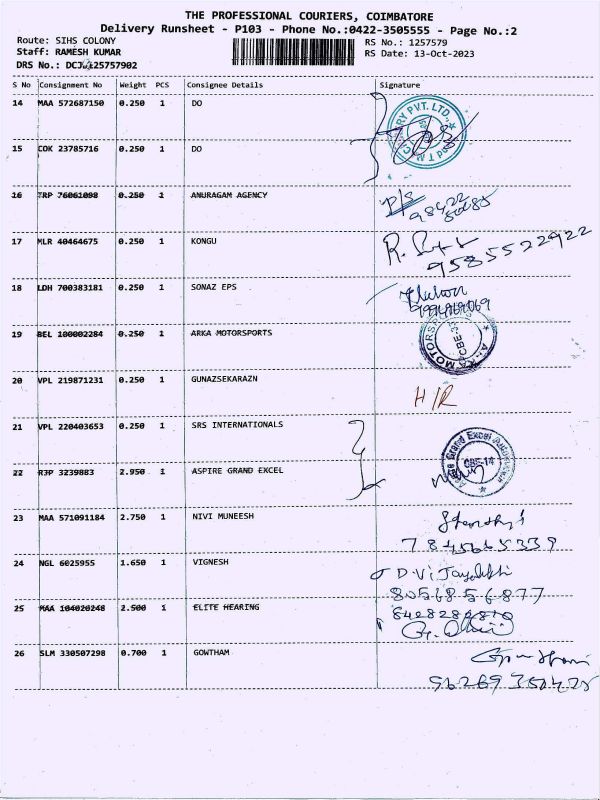 THE PROFESSIONAL COURIERS, COIMBATORE
Delivery Runsheet - P103 - Phone No.:0422-3505555 - Page No.:2
Route: SIHS COLONY RS No.: 1257579
Staff: RAMESH KUMAR RS Date: 13-Oct-2023
DRS No.:
S No Consignment No Weight PCS Consignee Details Signature
14 MAA 572687150 0.250 1 DO
15 COK 23785716 0.250 1 DO
16 TRP 76061098 0.250 1 ANURAGAM AGENCY
17 MLR 40464675 0.250 1 KONGU
9585522922
18 LDH 700383181 0.250 1 SONAZ EPS
19 BEL 100002284 0.250 1 ARKA MOTORSPORTS
20 VPL 219871231 0.250 1 GUNAZSEKARAZN
H/R
21 VPL 220403653 0.250 1 SRS INTERNATIONALS
22 RJP 3239883 2.950 1 ASPIRE GRAND EXCEL
CBE-14
23 MAA 571091184 2.750 1 NIVI MUNEESH
7845645339
24 NGL 6025955 1.650 1 VIGNESH
8056856877
25 MAA 104020248 2.500 1 ELITE HEARING
26 SLM 330507298 0.700 1 GOWTHAM